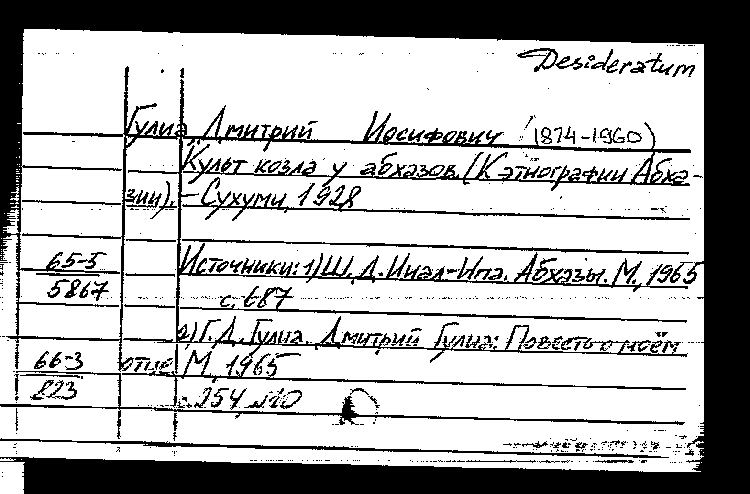 Desideratum
Гулиа Дмитрий Иосифович (1874-1960)
Культ козла у абхазов. (К этнографии Абха-
зии). – Сухуми, 1928
65-5 Источники: 1) Ш. Д. Инал-Ипа. Абхазы. М., 1965
5867 с. 687
2) Г. Д. Гулиа. Дмитрий Гулиа: Повесть о моём
66-3 отце М., 1965
823 с. 254, №10